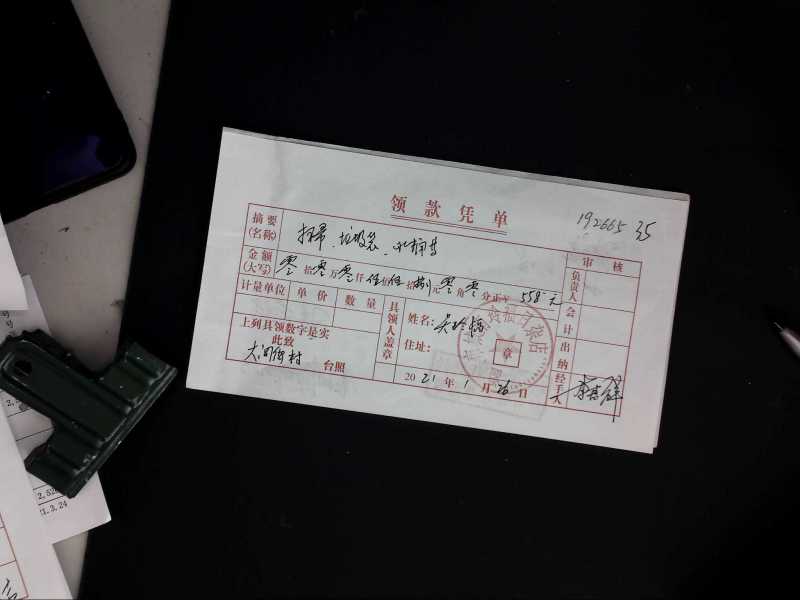 领款凭单
192665 35
摘要(名称) 扫帚、垃圾袋、水桶等
金额(大写) 零拾零万零仟伍佰伍拾捌元零角零分正¥ 558元
计量单位 单价 数量
上列具领数字是实
此致
大河街村 台照
具领人盖章
姓名:
住址:
章
2021年1月26日
审核
负责人
会计
出纳
经手人
2,52
1.3.24